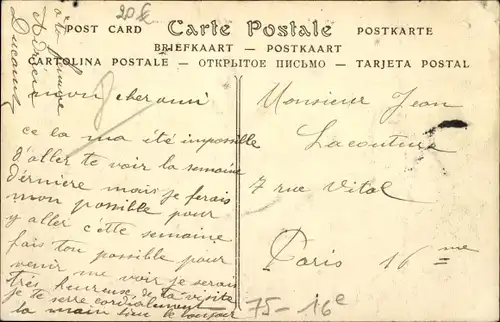 20f
POST CARD Carte Postale POSTKARTE
BRIEFKAART — POSTKAART
CARTOLINA POSTALE — ОТКРЫТОЕ ПИСЬМО — TARJETA POSTAL
mon cher ami
ce la ma été impossible
d'aller te voir la semaine
dérnière mais je ferais
mon possible pour
y aller cette semaine
fais ton possible pour
venir me voir je serais
trés heureuse de ta visite
je te serre cordialement
la main
Adrien
Ducount
Monsieur Jean
Lacouture
7 rue Vital
Paris 16 me
75-16e